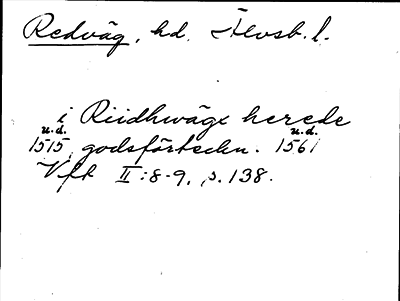 Redväg, hd. Älvsb. l.
i Riidhwäge herede
u.d. u.d.
1515, godsförteckn. 1561
Vft II:8-9, s. 138.